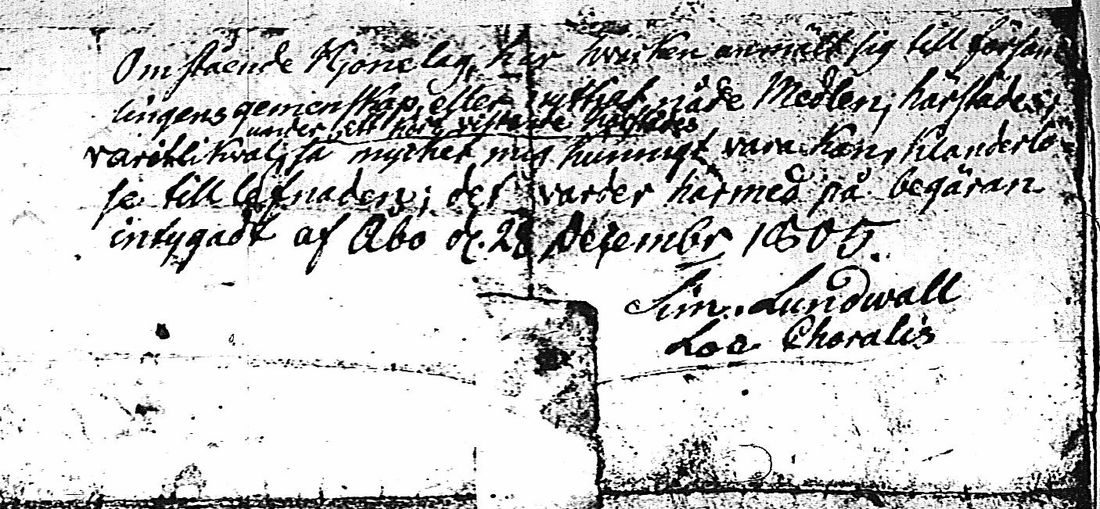 Omstående Hjonelag, har hvarken anmält sig till försam
lingens gemenskap, eller nyttjat nåde Medlen, härstädes;
under ett kort vistande härstädes
varit likval, så mycket mig kunnigt vara kan, klanderlö-
se till lefnaden; det varder härmed på begäran
intygadt af Åbo d. 28 Decembr 1805.
Sim. Lundwall
Loc Choralis